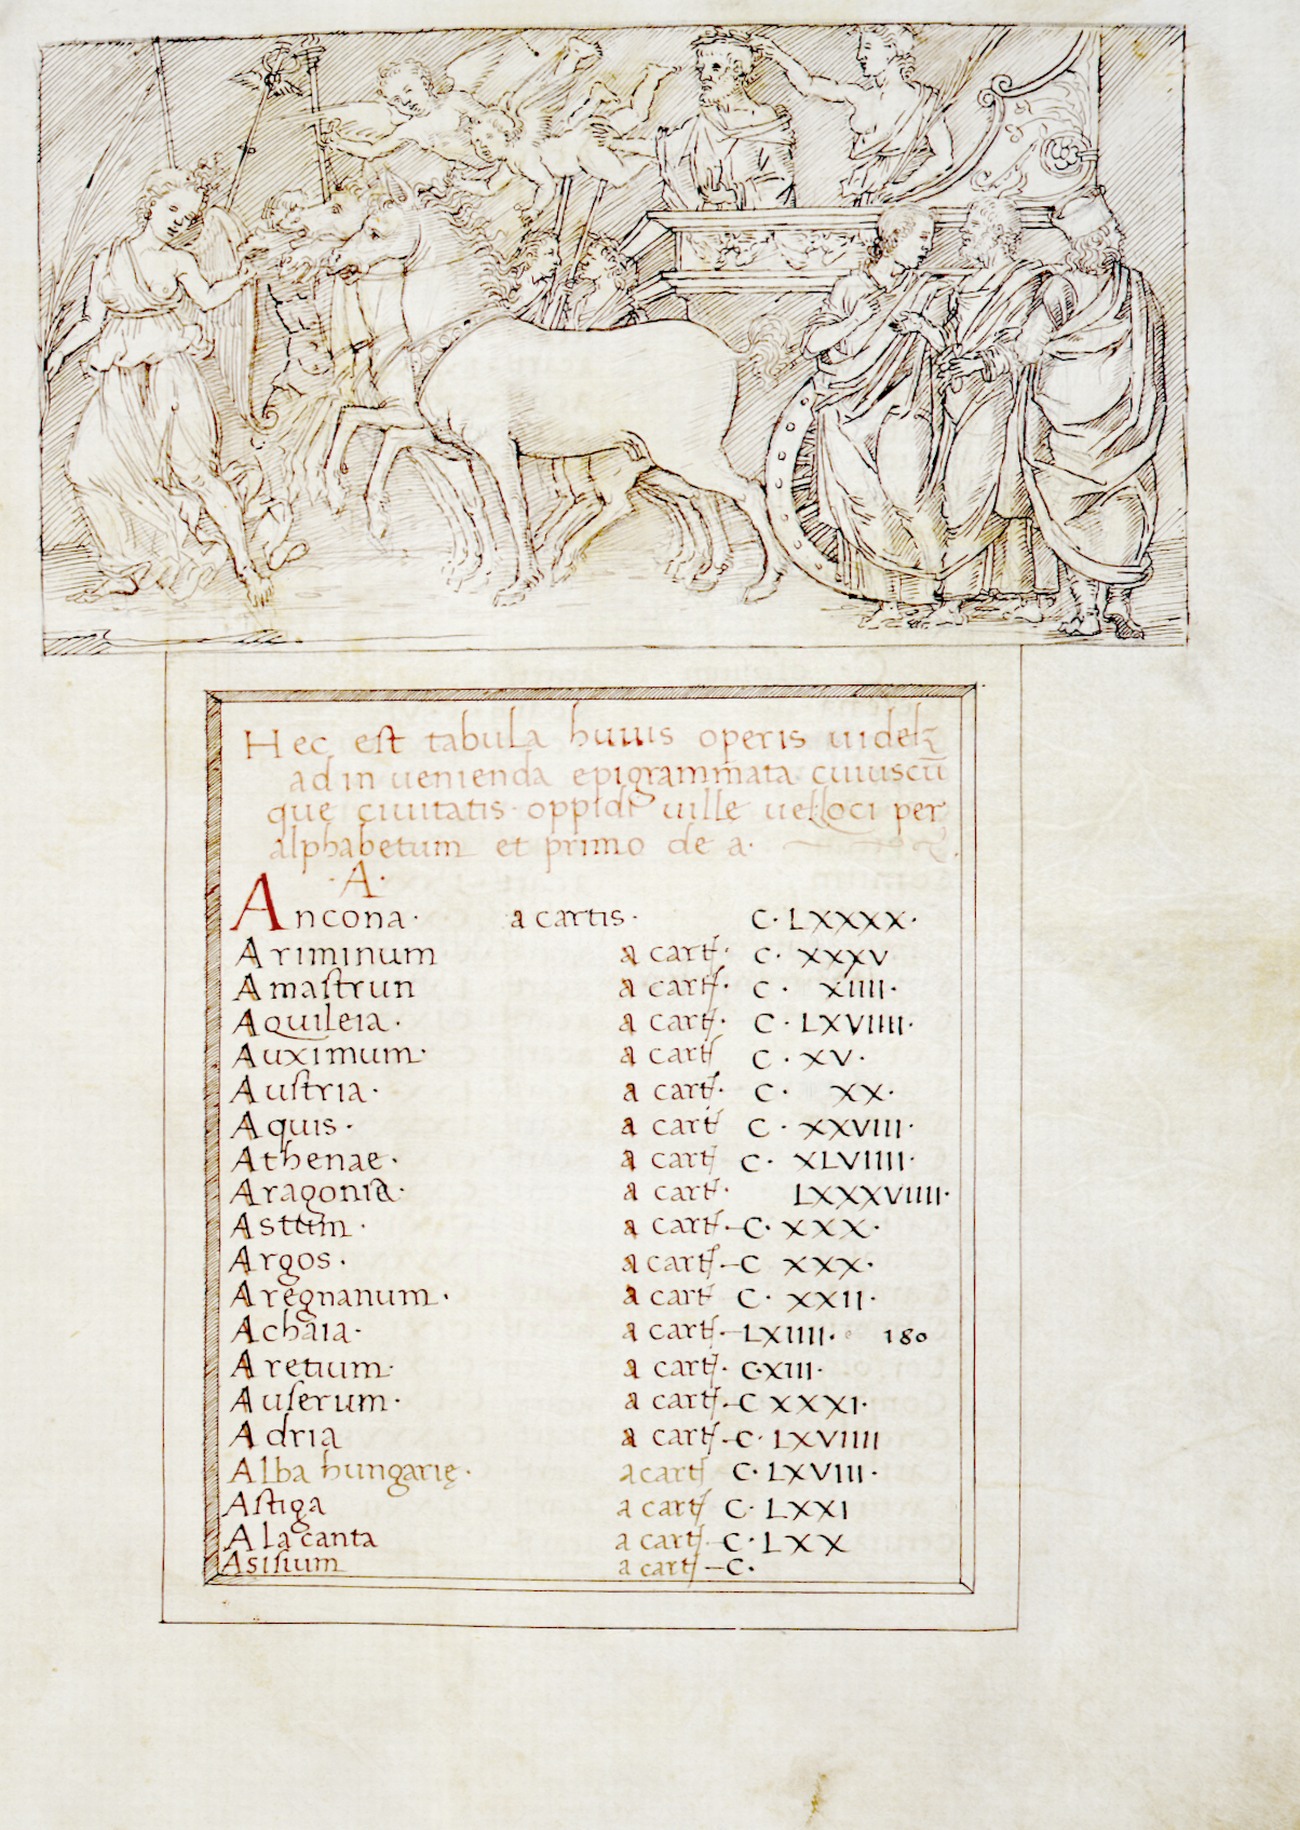 Hec est tabula huius operis uidelꝫ
ad in uenienda epigrammata cuiuscū
que ciuitatis · oppidi uille uel loci per
alphabetum et primo de a ·
· A ·
Ancona · a cartis · C · LXXXX ·
Ariminum a cart · C · XXXV
Amaſtrun a cart · C · XIIII ·
Aquileia · a cart · C · LXVIIII ·
Auximum · a cart C · XV ·
Auſtria · a cart · C · XX ·
Aquis · a cart C · XXVIII ·
Athenae · a cart C · XLVIIII ·
Aragonia · a cart · LXXXVIIII ·
Astum · a cart · C · XXX ·
Argos · a cart · C XXX ·
Aregnanum · a cart C · XXII ·
Achaia · a cart · LXIIII · 180
Aretium · a cart · C · XIII ·
Auſerum · a cart · C XXXI ·
Adria a cart · C · LXVIIII
Alba hungarię · a cart C · LXVIII ·
Aſtiga a cart C · LXXI
Ala canta a cart · C · LXX
Asiſium a cart C ·